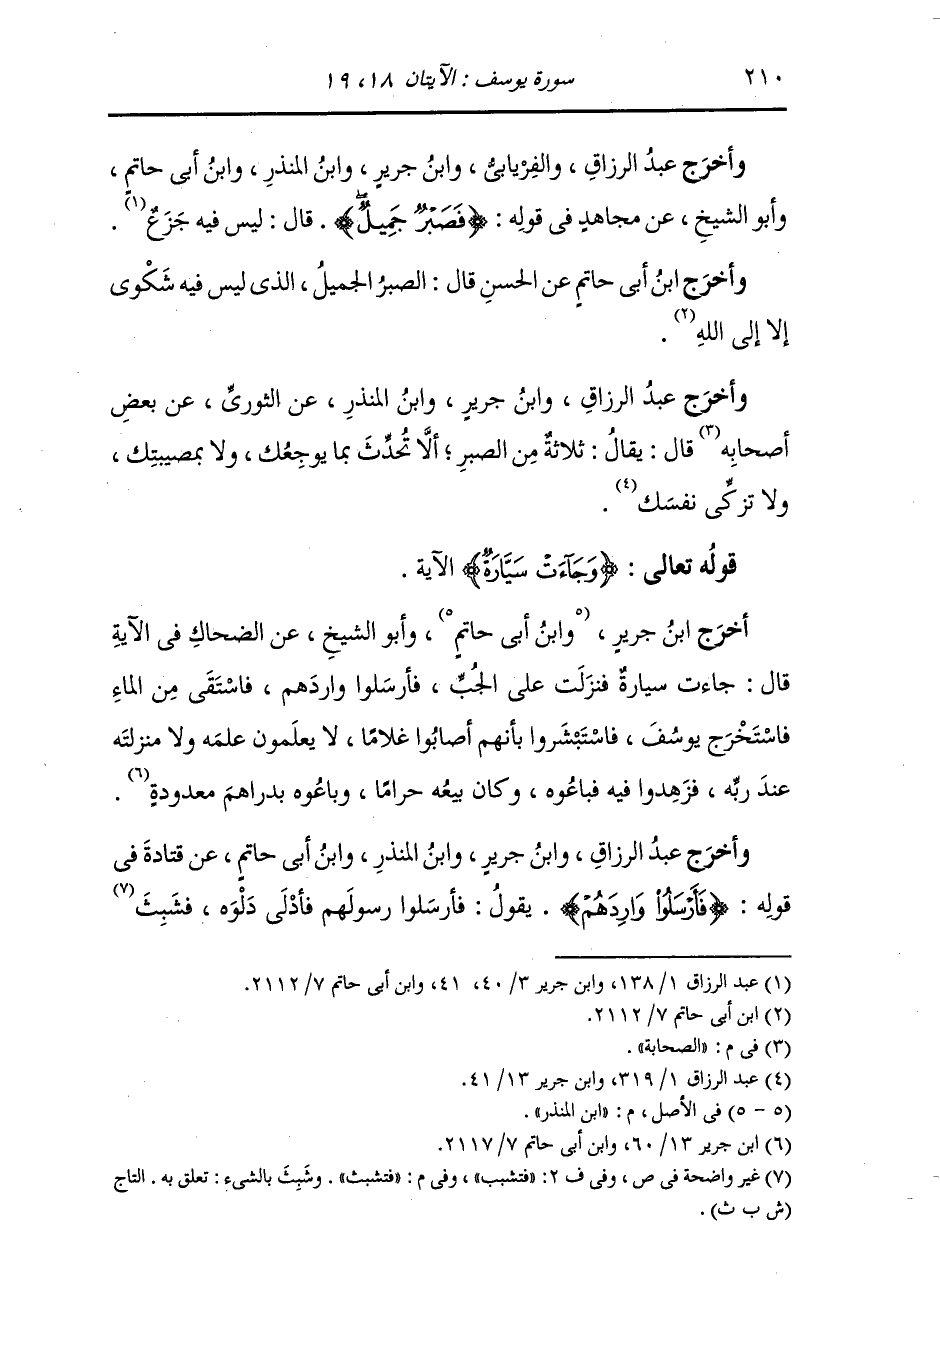 ٢١٠ سورة يوسف : الآيتان ١٨، ١٩
وأخرَج عبدُ الرزاقِ ، والفِرْيابىُّ ، وابنُ جريرٍ ، وابنُ المنذرِ ، وابنُ أبى حاتمٍ ،
وأبو الشيخِ ، عن مجاهدٍ فى قولِه : ﴿فَصَبْرٌ جَمِيلٌ﴾ . قال : ليس فيه جَزَعٌ(١) .
وأخرَج ابنُ أبى حاتمٍ عن الحسنِ قال : الصبرُ الجميلُ ، الذى ليس فيه شَكْوى
إلا إلى اللهِ(٢) .
وأخرَج عبدُ الرزاقِ ، وابنُ جريرٍ ، وابنُ المنذرِ ، عن الثورىِّ ، عن بعضِ
أصحابِه(٣) قال : يقالُ : ثلاثةٌ مِن الصبرِ ؛ ألَّا تُحدِّثَ بما يوجِعُك ، ولا بمصيبتِك ،
ولا تزكِّى نفسَك(٤) .
قولُه تعالى : ﴿وَجَآءَتْ سَيَّارَةٌ﴾ الآية .
أخرَج ابنُ جريرٍ ، (٥وابنُ أبى حاتمٍ٥) ، وأبو الشيخِ ، عن الضحاكِ فى الآيةِ
قال : جاءت سيارةٌ فنزَلَت على الجُبِّ ، فأرسَلوا واردَهم ، فاسْتَقَى مِن الماءِ
فاسْتَخْرَج يوسُفَ ، فاسْتَبْشَروا بأنهم أصابُوا غلامًا ، لا يعلَمون علمَه ولا منزلتَه
عندَ ربِّه ، فزَهِدوا فيه فباعُوه ، وكان بيعُه حرامًا ، وباعُوه بدراهمَ معدودةٍ(٦) .
وأخرَج عبدُ الرزاقِ ، وابنُ جريرٍ ، وابنُ المنذرِ ، وابنُ أبى حاتمٍ ، عن قتادةَ فى
قولِه : ﴿فَأَرْسَلُوا۟ وَارِدَهُمْ﴾ . يقولُ : فأرسَلوا رسولَهم فأدْلَى دَلْوَه ، فشَبِثَ(٧)
(١) عبد الرزاق ١/ ١٣٨، وابن جرير ٣/ ٤٠، ٤١، وابن أبى حاتم ٧/ ٢١١٢.
(٢) ابن أبى حاتم ٧/ ٢١١٢.
(٣) فى م : «الصحابة» .
(٤) عبد الرزاق ١/ ٣١٩، وابن جرير ١٣/ ٤١.
(٥ - ٥) فى الأصل ، م : «ابن المنذر» .
(٦) ابن جرير ١٣/ ٦٠، وابن أبى حاتم ٧/ ٢١١٧.
(٧) غير واضحة فى ص ، وفى ف ٢: «فتشبب» ، وفى م : «فتشبث» . وشَبِثَ بالشىء : تعلق به . التاج
(ش ب ث) .